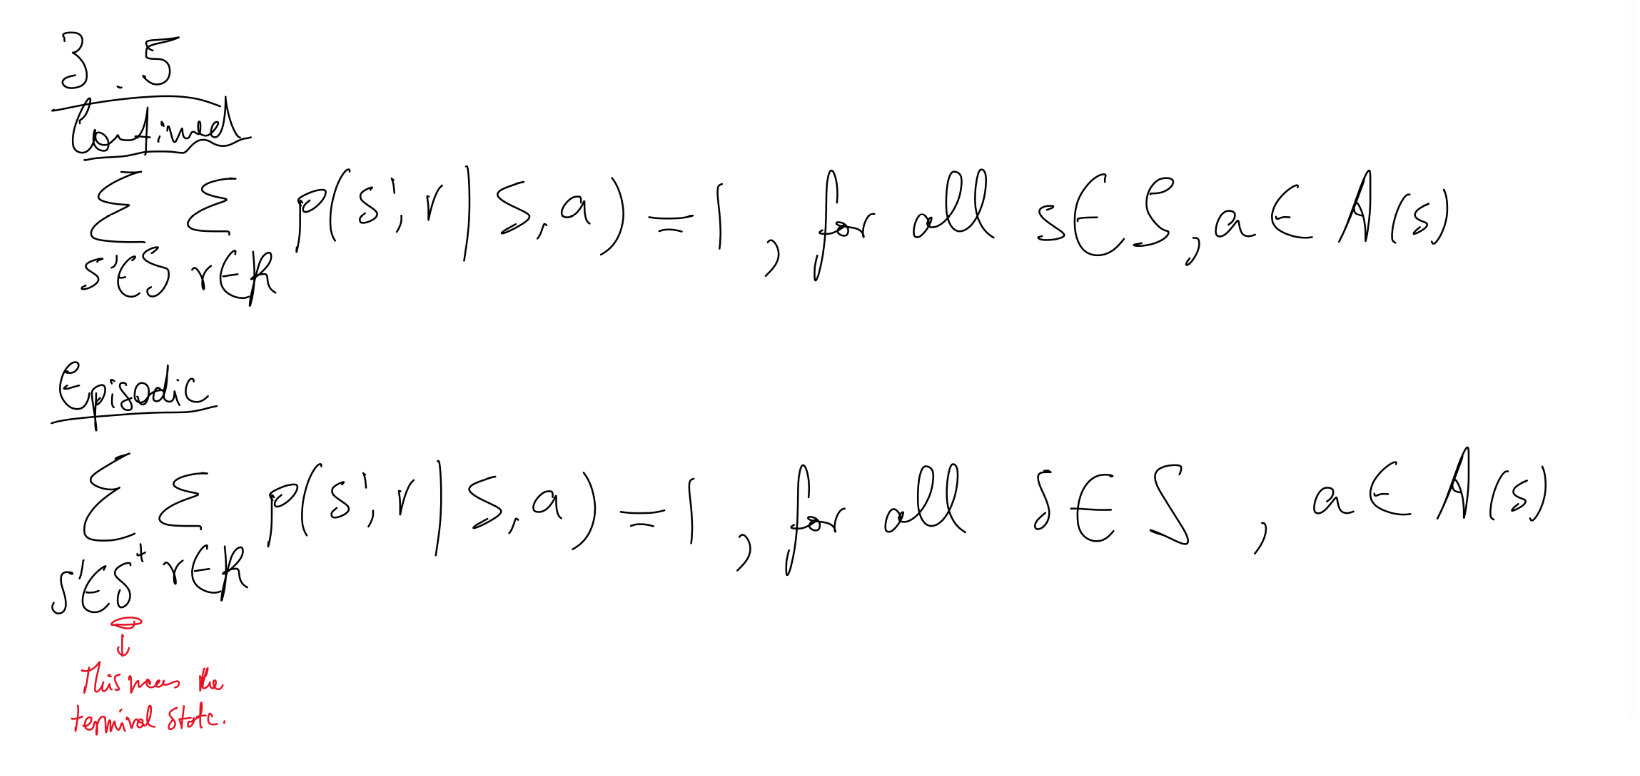 3.5
Continued
Σ Σ p(s', r | s, a) = 1, for all s ∈ S, a ∈ A(s)
s' ∈ S r ∈ R
Episodic
Σ Σ p(s', r | s, a) = 1, for all s ∈ S, a ∈ A(s)
s' ∈ S⁺ r ∈ R
↓
This means the
terminal state.